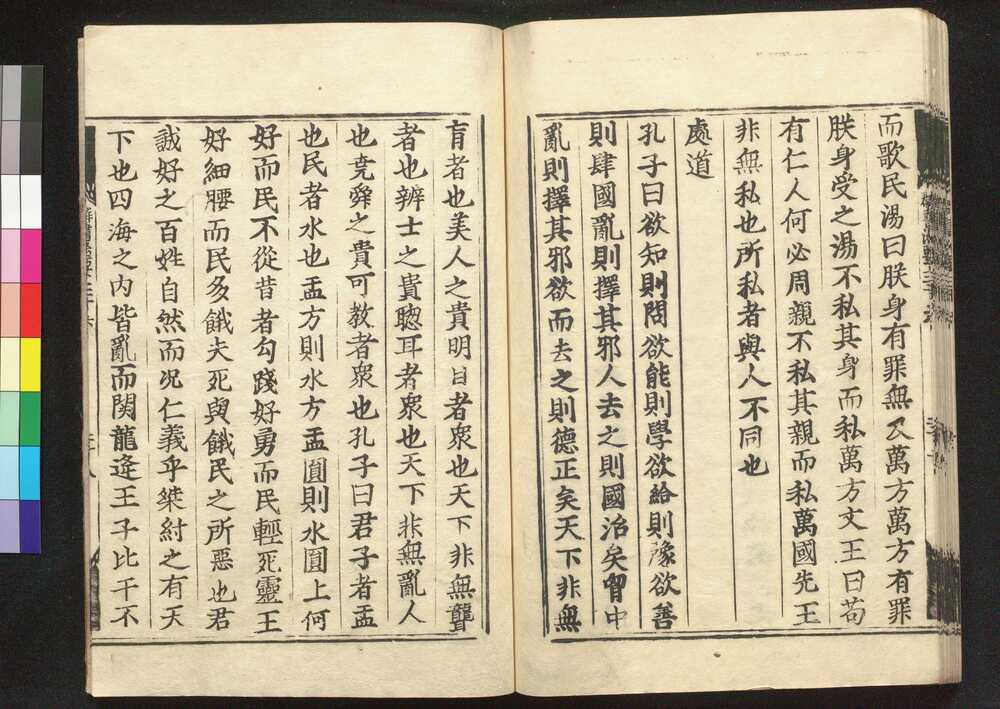 而歌民湯曰朕身有罪無及萬方萬方有罪
朕身受之湯不私其身而私萬方文王曰苟
有仁人何必周親不私其親而私萬國先王
非無私也所私者與人不同也
處道
孔子曰欲知則問欲能則學欲給則豫欲善
則肆國亂則擇其邪人去之則國治矣胷中
亂則擇其邪欲而去之則德正矣天下非無
盲者也美人之貴明目者衆也天下非無聾
者也辨士之貴聰耳者衆也天下非無亂人
也堯舜之貴可教者衆也孔子曰君子者盂
也民者水也盂方則水方盂圎則水圎上何
好而民不從昔者勾踐好勇而民輕死靈王
好細腰而民多餓夫死與餓民之所惡也君
誠好之百姓自然而况仁義乎桀紂之有天
下也四海之内皆亂而関龍逄王子比干不